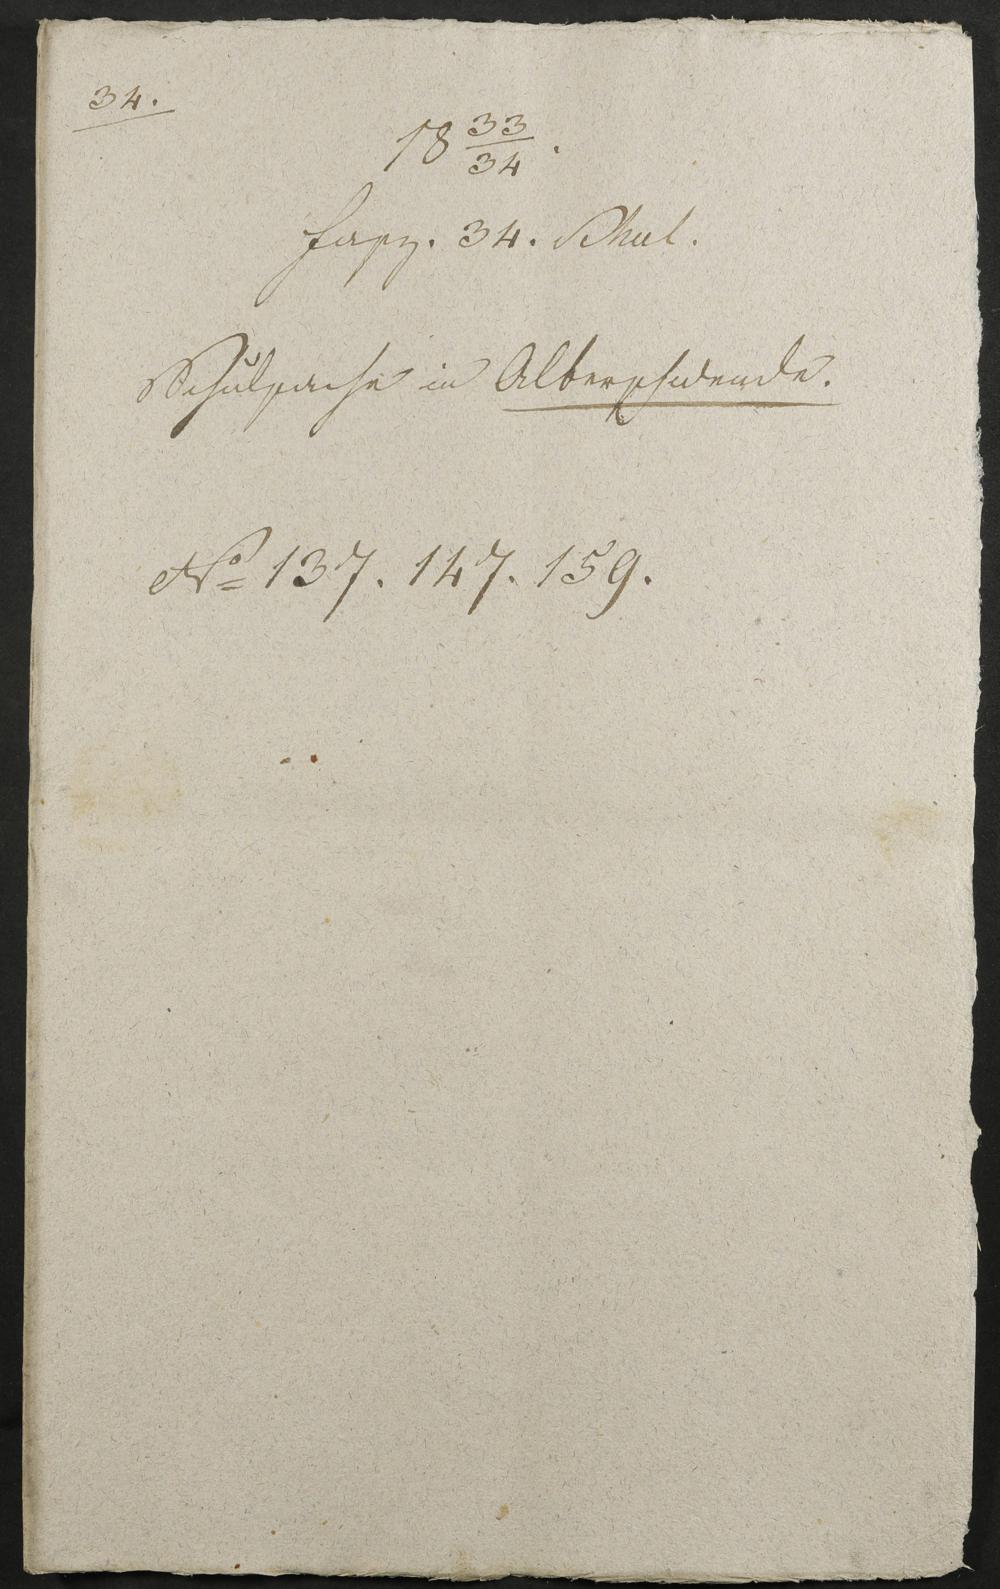 34.
18 33/34.
Fasz. 34. Schul.
Schulsache in Alberschwende.
No 137. 147. 159.